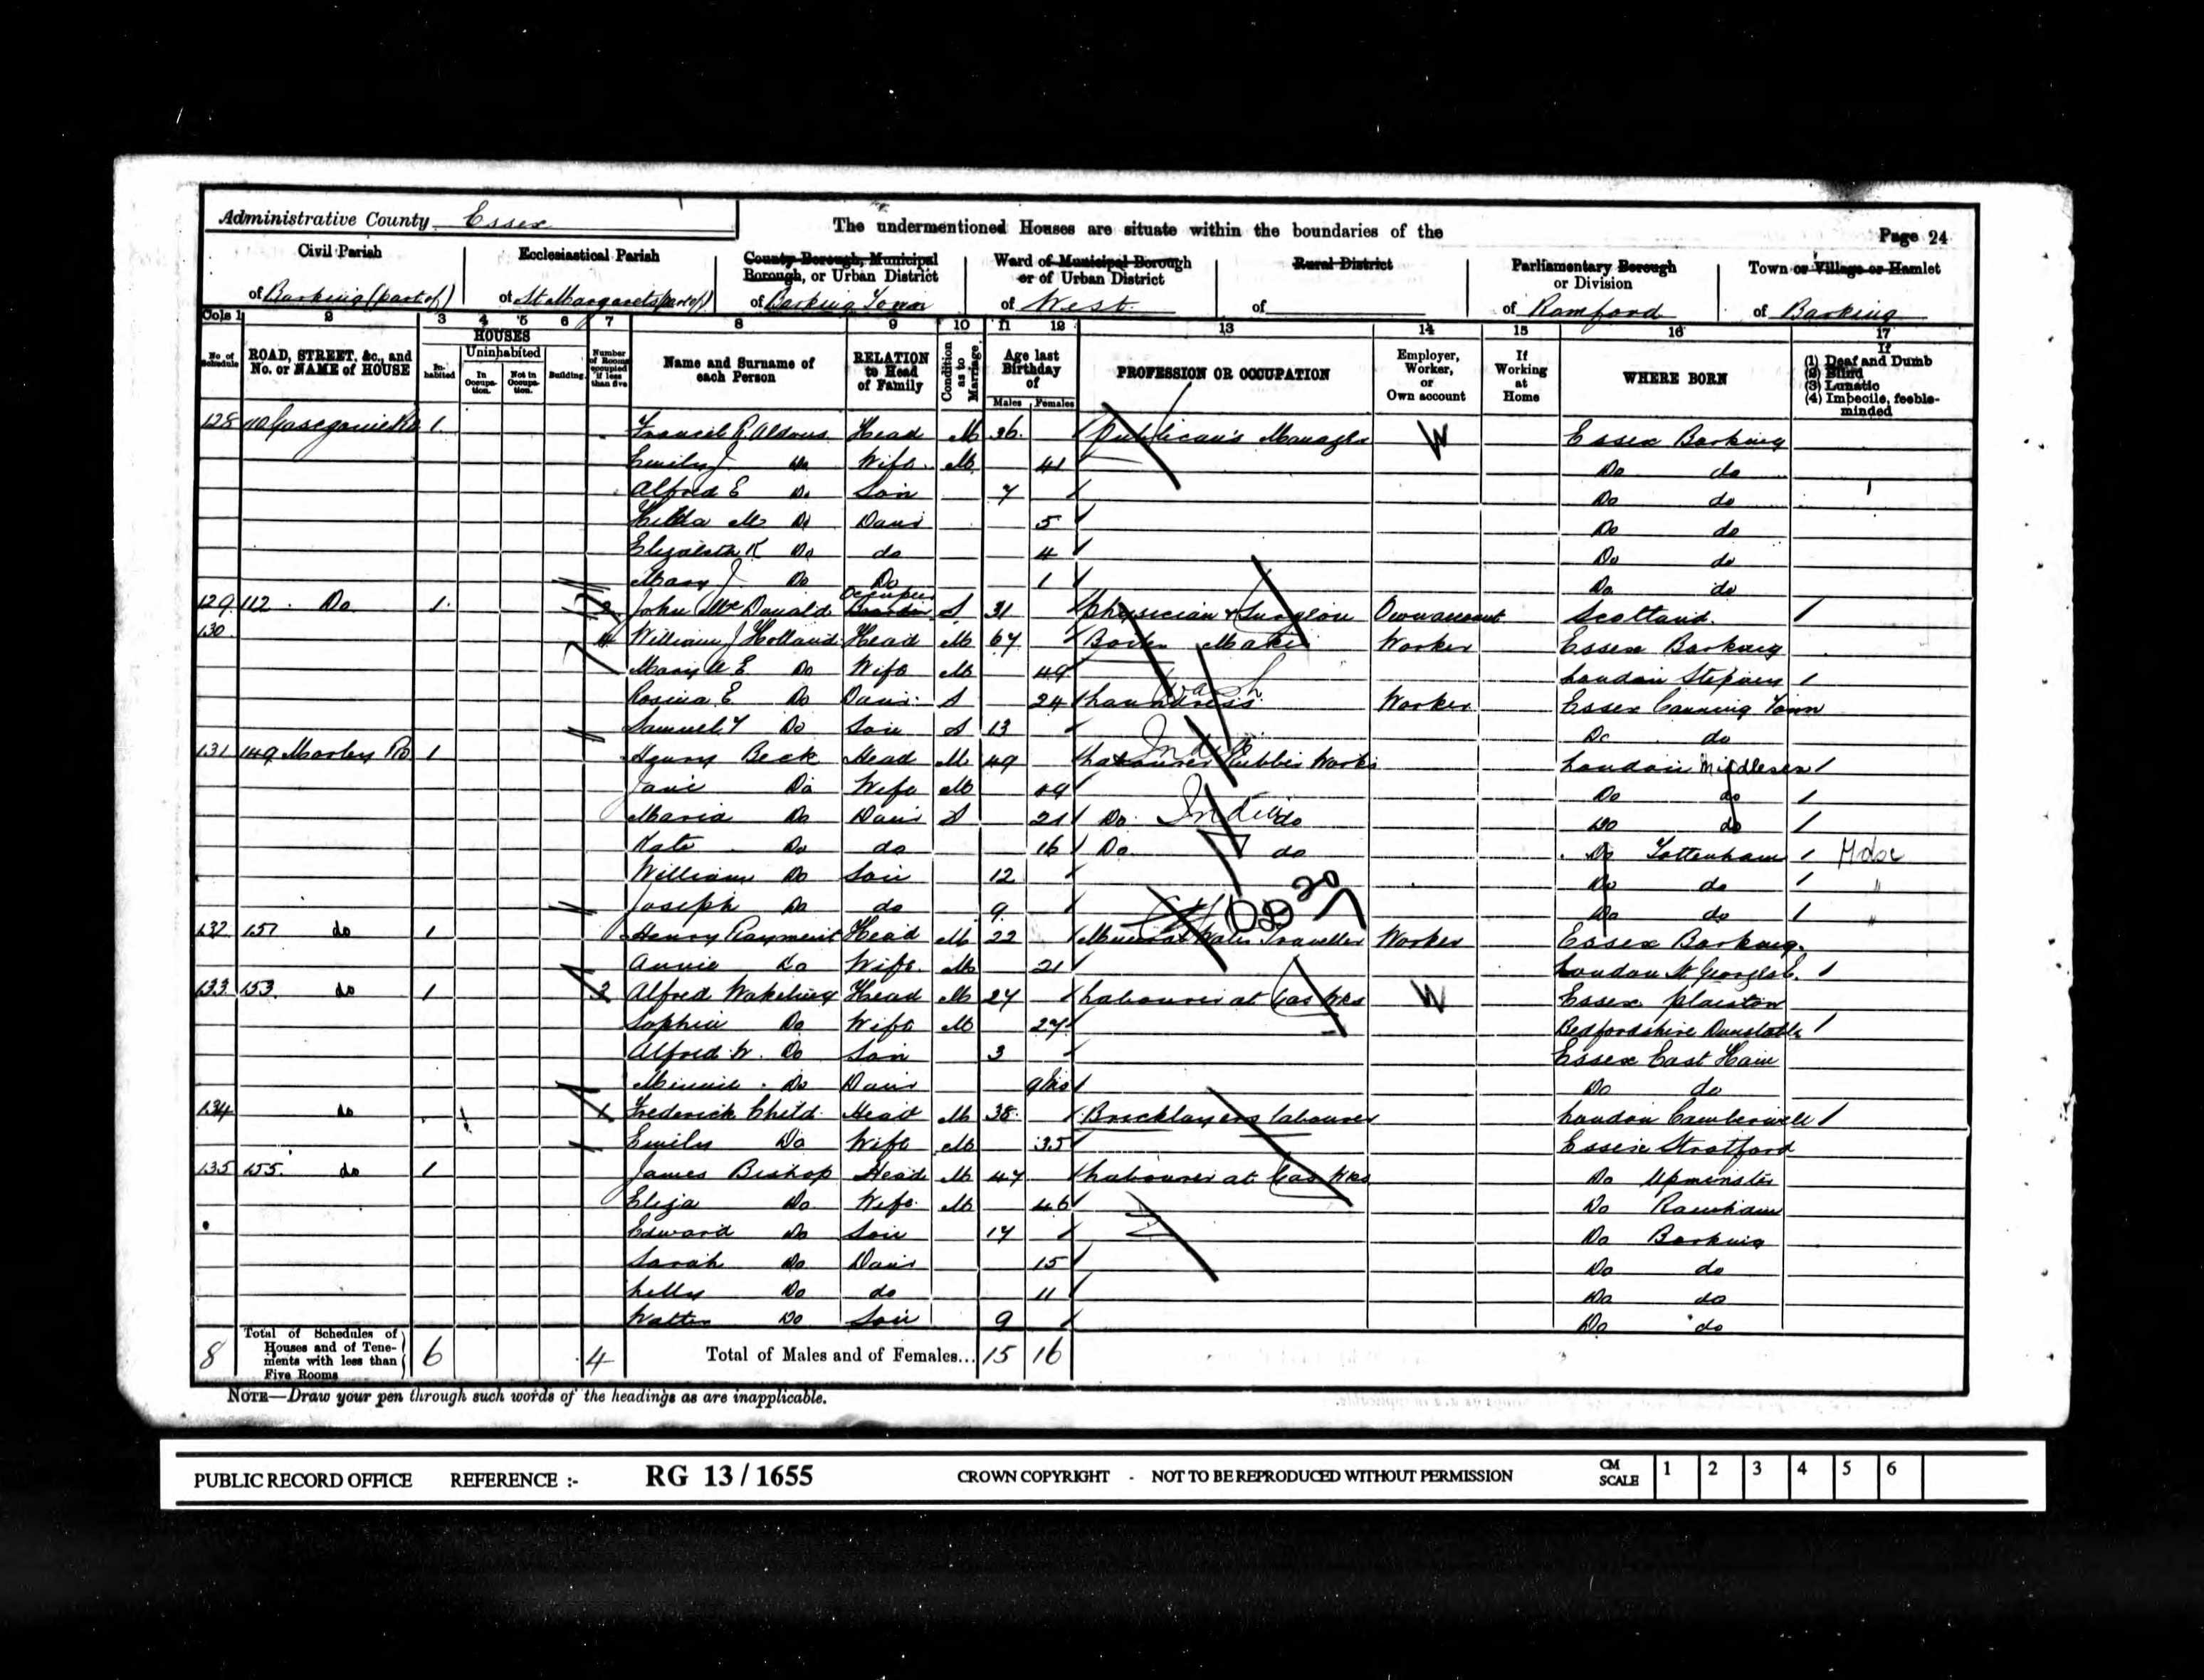 Administrative County Essex
The undermentioned Houses are situate within the boundaries of the
Page 24
Civil Parish
of Barking (part of)
Ecclesiastical Parish
of St Margarets (part of)
County Borough, Municipal Borough, or Urban District
of Barking Town
Ward of Municipal Borough or of Urban District
of West
Rural District
of
Parliamentary Borough or Division
of Romford
Town or Village or Hamlet
of Barking
Cols 1 2 3 4 5 6 7 8 9 10 11 12 13 14 15 16 17
No. of Schedule
ROAD, STREET, &c., and No. or NAME of HOUSE
HOUSES
Inhabited
Uninhabited
In Occupation.
Not in Occupation.
Building.
Number of Rooms occupied if less than five
Name and Surname of each Person
RELATION to Head of Family
Condition as to Marriage
Age last Birthday of
Males Females
PROFESSION OR OCCUPATION
Employer, Worker, or Own account
If Working at Home
WHERE BORN
If
(1) Deaf and Dumb
(2) Blind
(3) Lunatic
(4) Imbecile, feeble-minded
128 110 Gascoigne Rd 1 Francis R Aldous Head M 36 Publican's Manager W Essex Barking
Emily J Do Wife M 41 Do do
Alfred E Do Son 7 Do do
Hilda M Do Daur 5 Do do
Elizabeth K Do do 4 Do do
Mary J Do Do 1 Do do
129 112 Do 1 John McDonald Occupier S 31 Physician & Surgeon Own account Scotland
130 4 William J Holland Head M 67 Worker Essex Barking
Mary A E Do Wife M 49 London Stepney
Rosina E Do Daur S 24 Laundress Wash Worker Essex Canning Town
Samuel Do Son S 13 Do do
131 149 Morley Rd 1 Henry Beck Head M 49 Labourer Rubber Works India London Middlesex
Jane Do Wife M 49 Do do
Maria Do Daur S 21 Do India do Do do
Kate Do do 16 Do do Do Tottenham Mdsx
William Do Son 12 Do do "
Joseph Do do 9 Do do "
132 151 do 1 Henry Rayment Head M 22 Mineral Water Traveller Worker Essex Barking
Annie Do Wife M 21 London St Georges E.
133 153 do 1 3 Alfred Wakeling Head M 27 Labourer at Gas Wks W Essex Plaistow
Sophia Do Wife M 27 Bedfordshire Dunstable
Alfred W. Do Son 3 Essex East Ham
Minnie Do Daur 9 mo Do do
134 do 1 Frederick Child Head M 38 Bricklayers labourer London Camberwell
Emily Do Wife M 35 Essex Stratford
135 155 do 1 James Bishop Head M 47 Labourer at Gas Wks Do Upminster
Eliza Do Wife M 46 Do Rainham
Edward Do Son 17 Do Barking
Sarah Do Daur 15 Do do
Do do 11 Do do
Walter Do Son 9 Do do
8 Total of Schedules of Houses and of Tenements with less than Five Rooms 6 4 Total of Males and of Females... 15 16
NOTE—Draw your pen through such words of the headings as are inapplicable.
PUBLIC RECORD OFFICE REFERENCE :- RG 13 / 1655 CROWN COPYRIGHT - NOT TO BE REPRODUCED WITHOUT PERMISSION CM SCALE 1 2 3 4 5 6